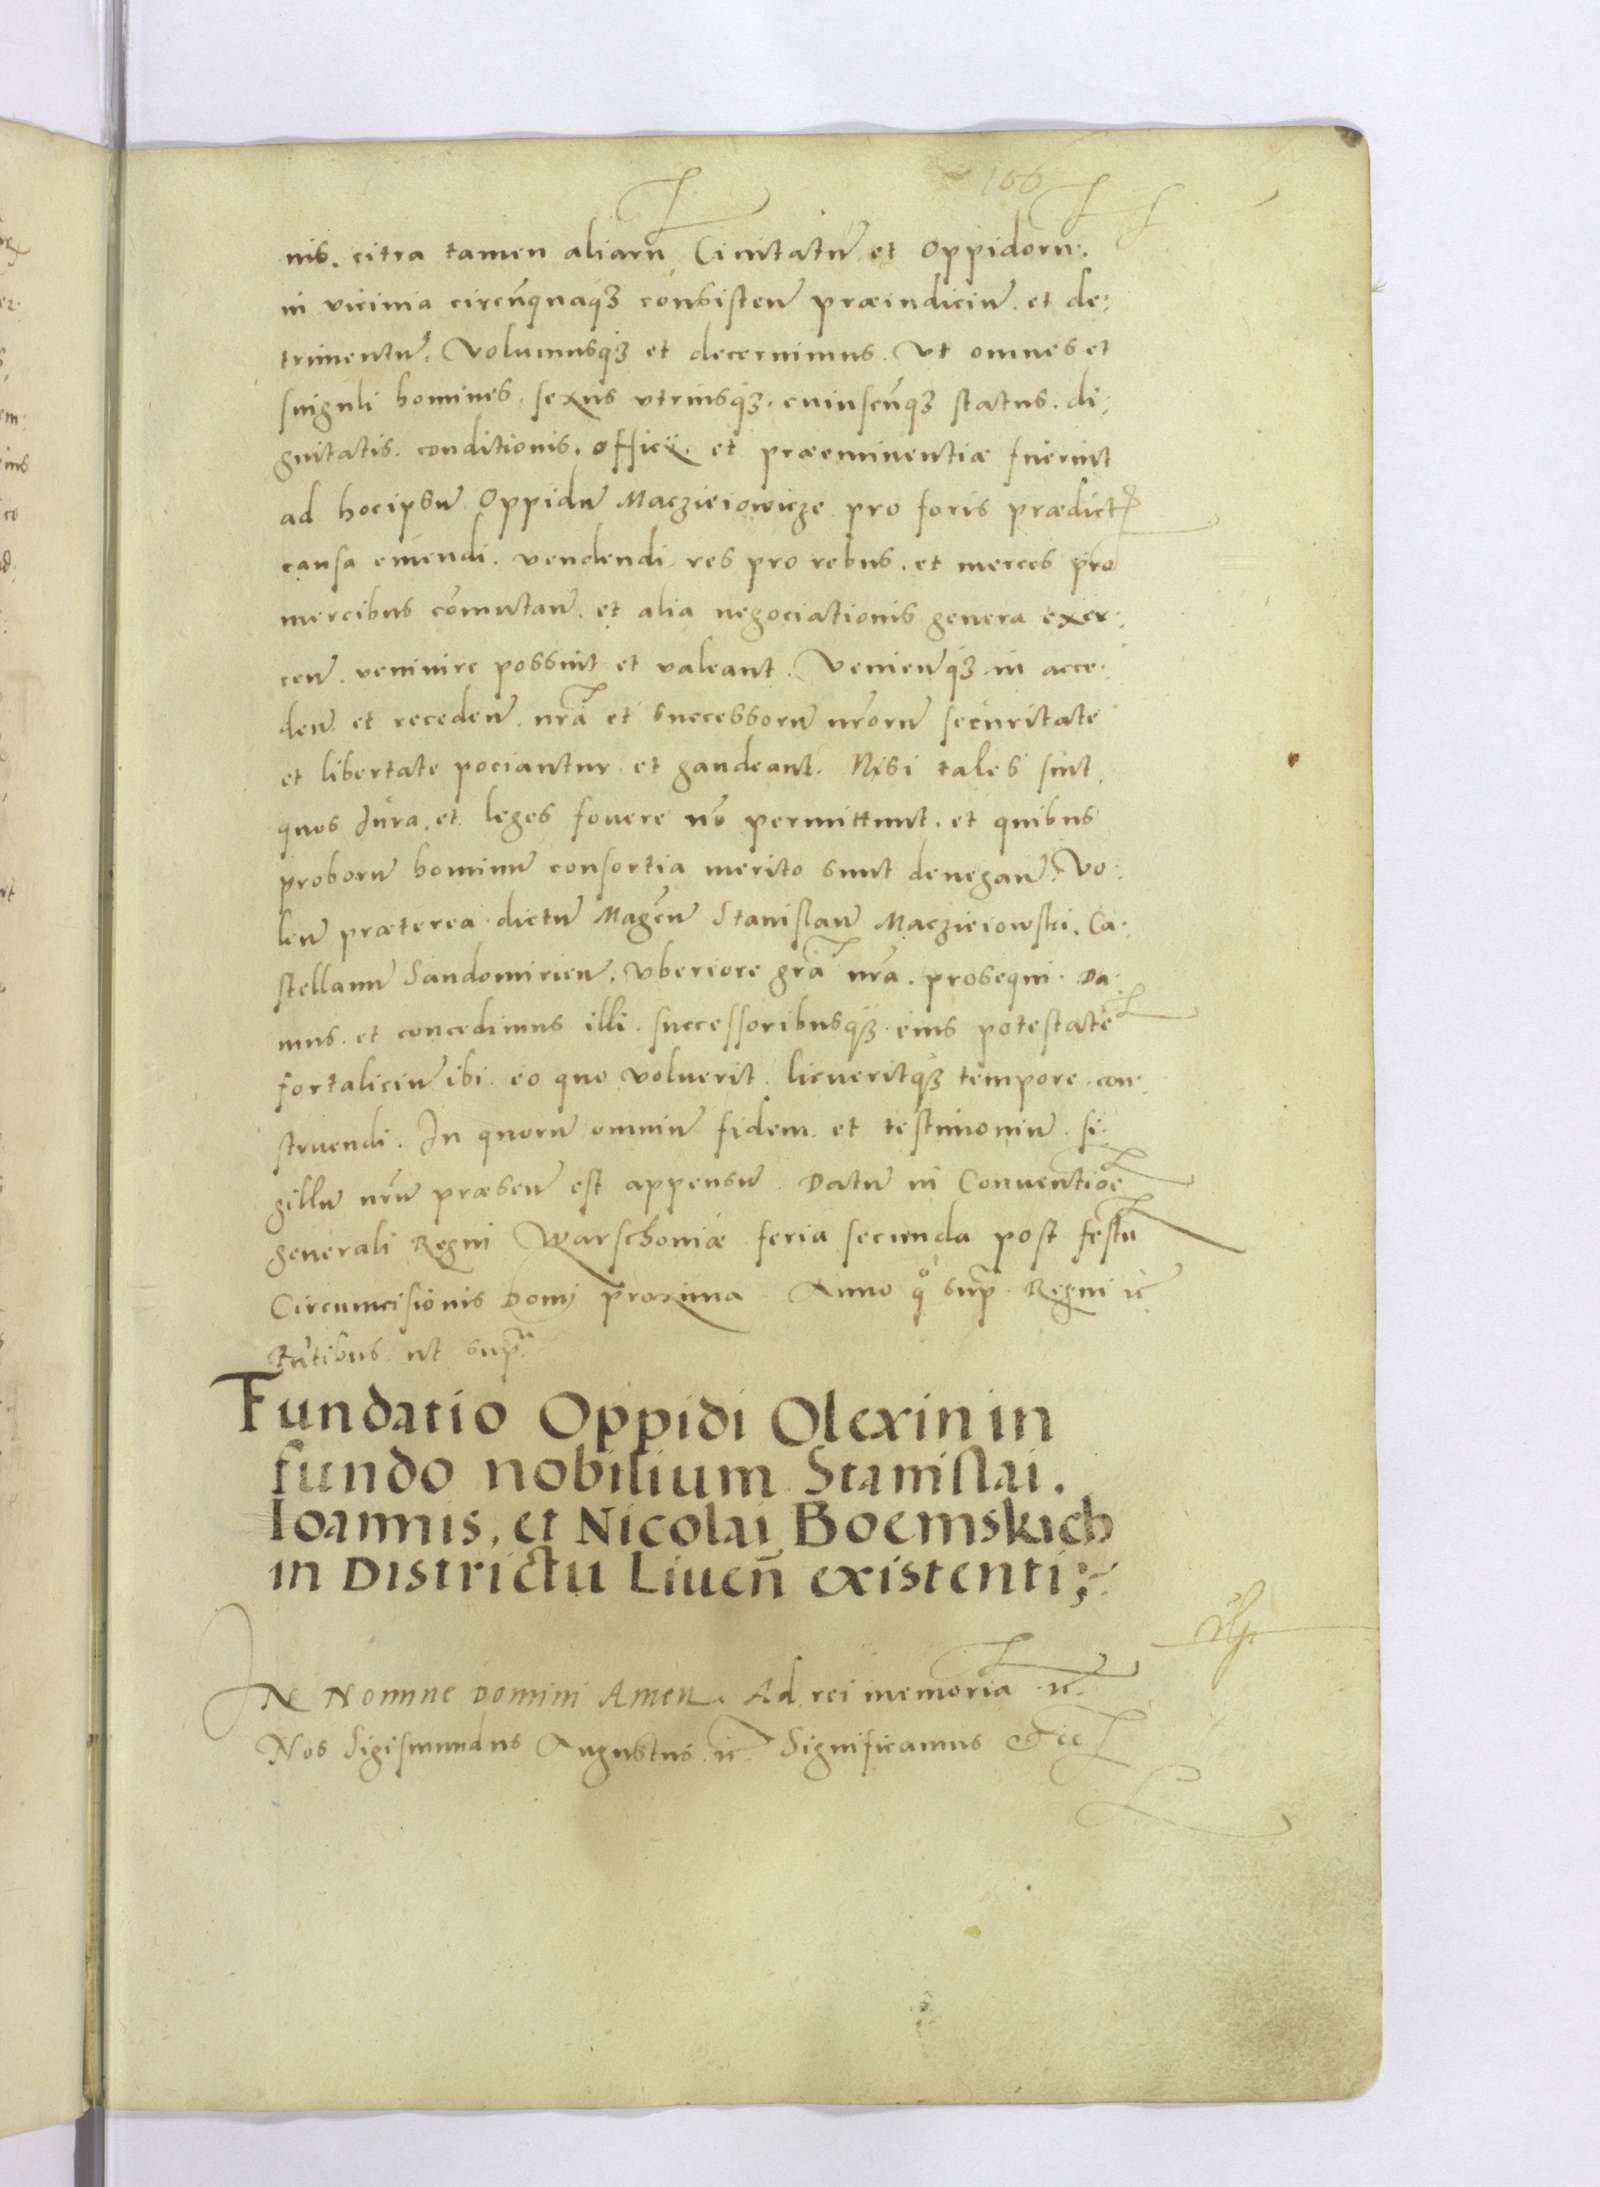 166
nis. citra tamen aliarū Civitatū et Oppidorū.
in vicinia circūquaq₃ consisteñ præiudiciū et de:
trimentū. Volumusq₃ et decernimus. Vt omnes et
singuli homines. sexus utriusq₃. cuiuscūq₃ status. di:
gnitatis. conditionis. officij. et præeminentiæ fuerint
ad hocipsū Oppidū Maczieiowicze pro foris prædict
causa emendi. vendendi. res pro rebus. et merces pro
mercibus cōmutañ. et alia negociationis genera exer:
ceñ. venire possint et valeant. Venieñq₃. in acce:
deñ et recedeñ. nr̄a et successorū nr̄orū securitate
et libertate pociantur et gaudeant. Nisi tales sint
quos Jura. et leges fovere nō permittunt. et quibus
proborū hominū consortia merito sunt denegañ. Vo:
leñ præterea dictū Mag̃cū Stanislaū Macziеiowski. Ca:
stellanū Sandomirieñ. Vberiore gr̄a nr̄a. prosequi. Da:
mus. et concedimus illi. successoribusq₃ eius potestatē
fortaliciū ibi. eo quo voluerit. licueritq₃ tempore. con:
struendi. In quorū omniū fidem. et testimoniū. si:
gillū nr̄ū præseñ est appensū. Datū in Conventiōe
generali Regni Warschoniæ feria secunda post festū
Circumcisionis Domj proxima. Anno qº sup̄. Regni ꝛc̄
Rntibus ut sup̄
Fundatio Oppidi Olexin in
fundo nobilium Stanislai.
Ioannis, et Nicolai Boemskich
in Districtu Liueñ existenti;
IN Nomine Domini Amen. Ad rei memoriā ꝛc̄.
Nos Sigismundus Augustus ꝛc̄. Significamus &cc